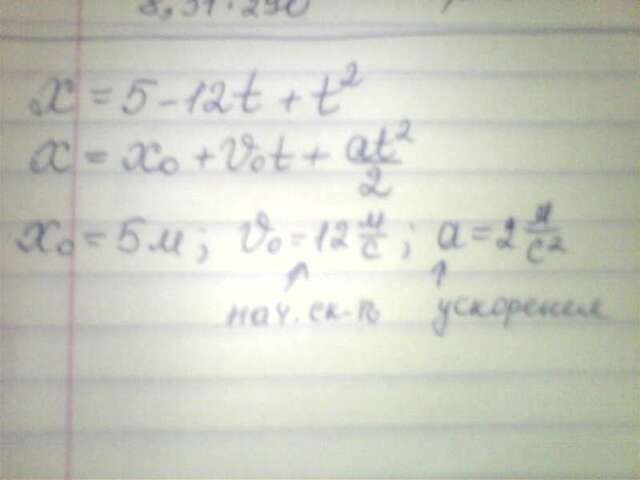 8,31·290
x = 5 - 12t + t²
x = x₀ + v₀t + at²/2
x₀ = 5 м; v₀ = 12 м/с; a = 2 м/с²
нач. ск-ть ускорение